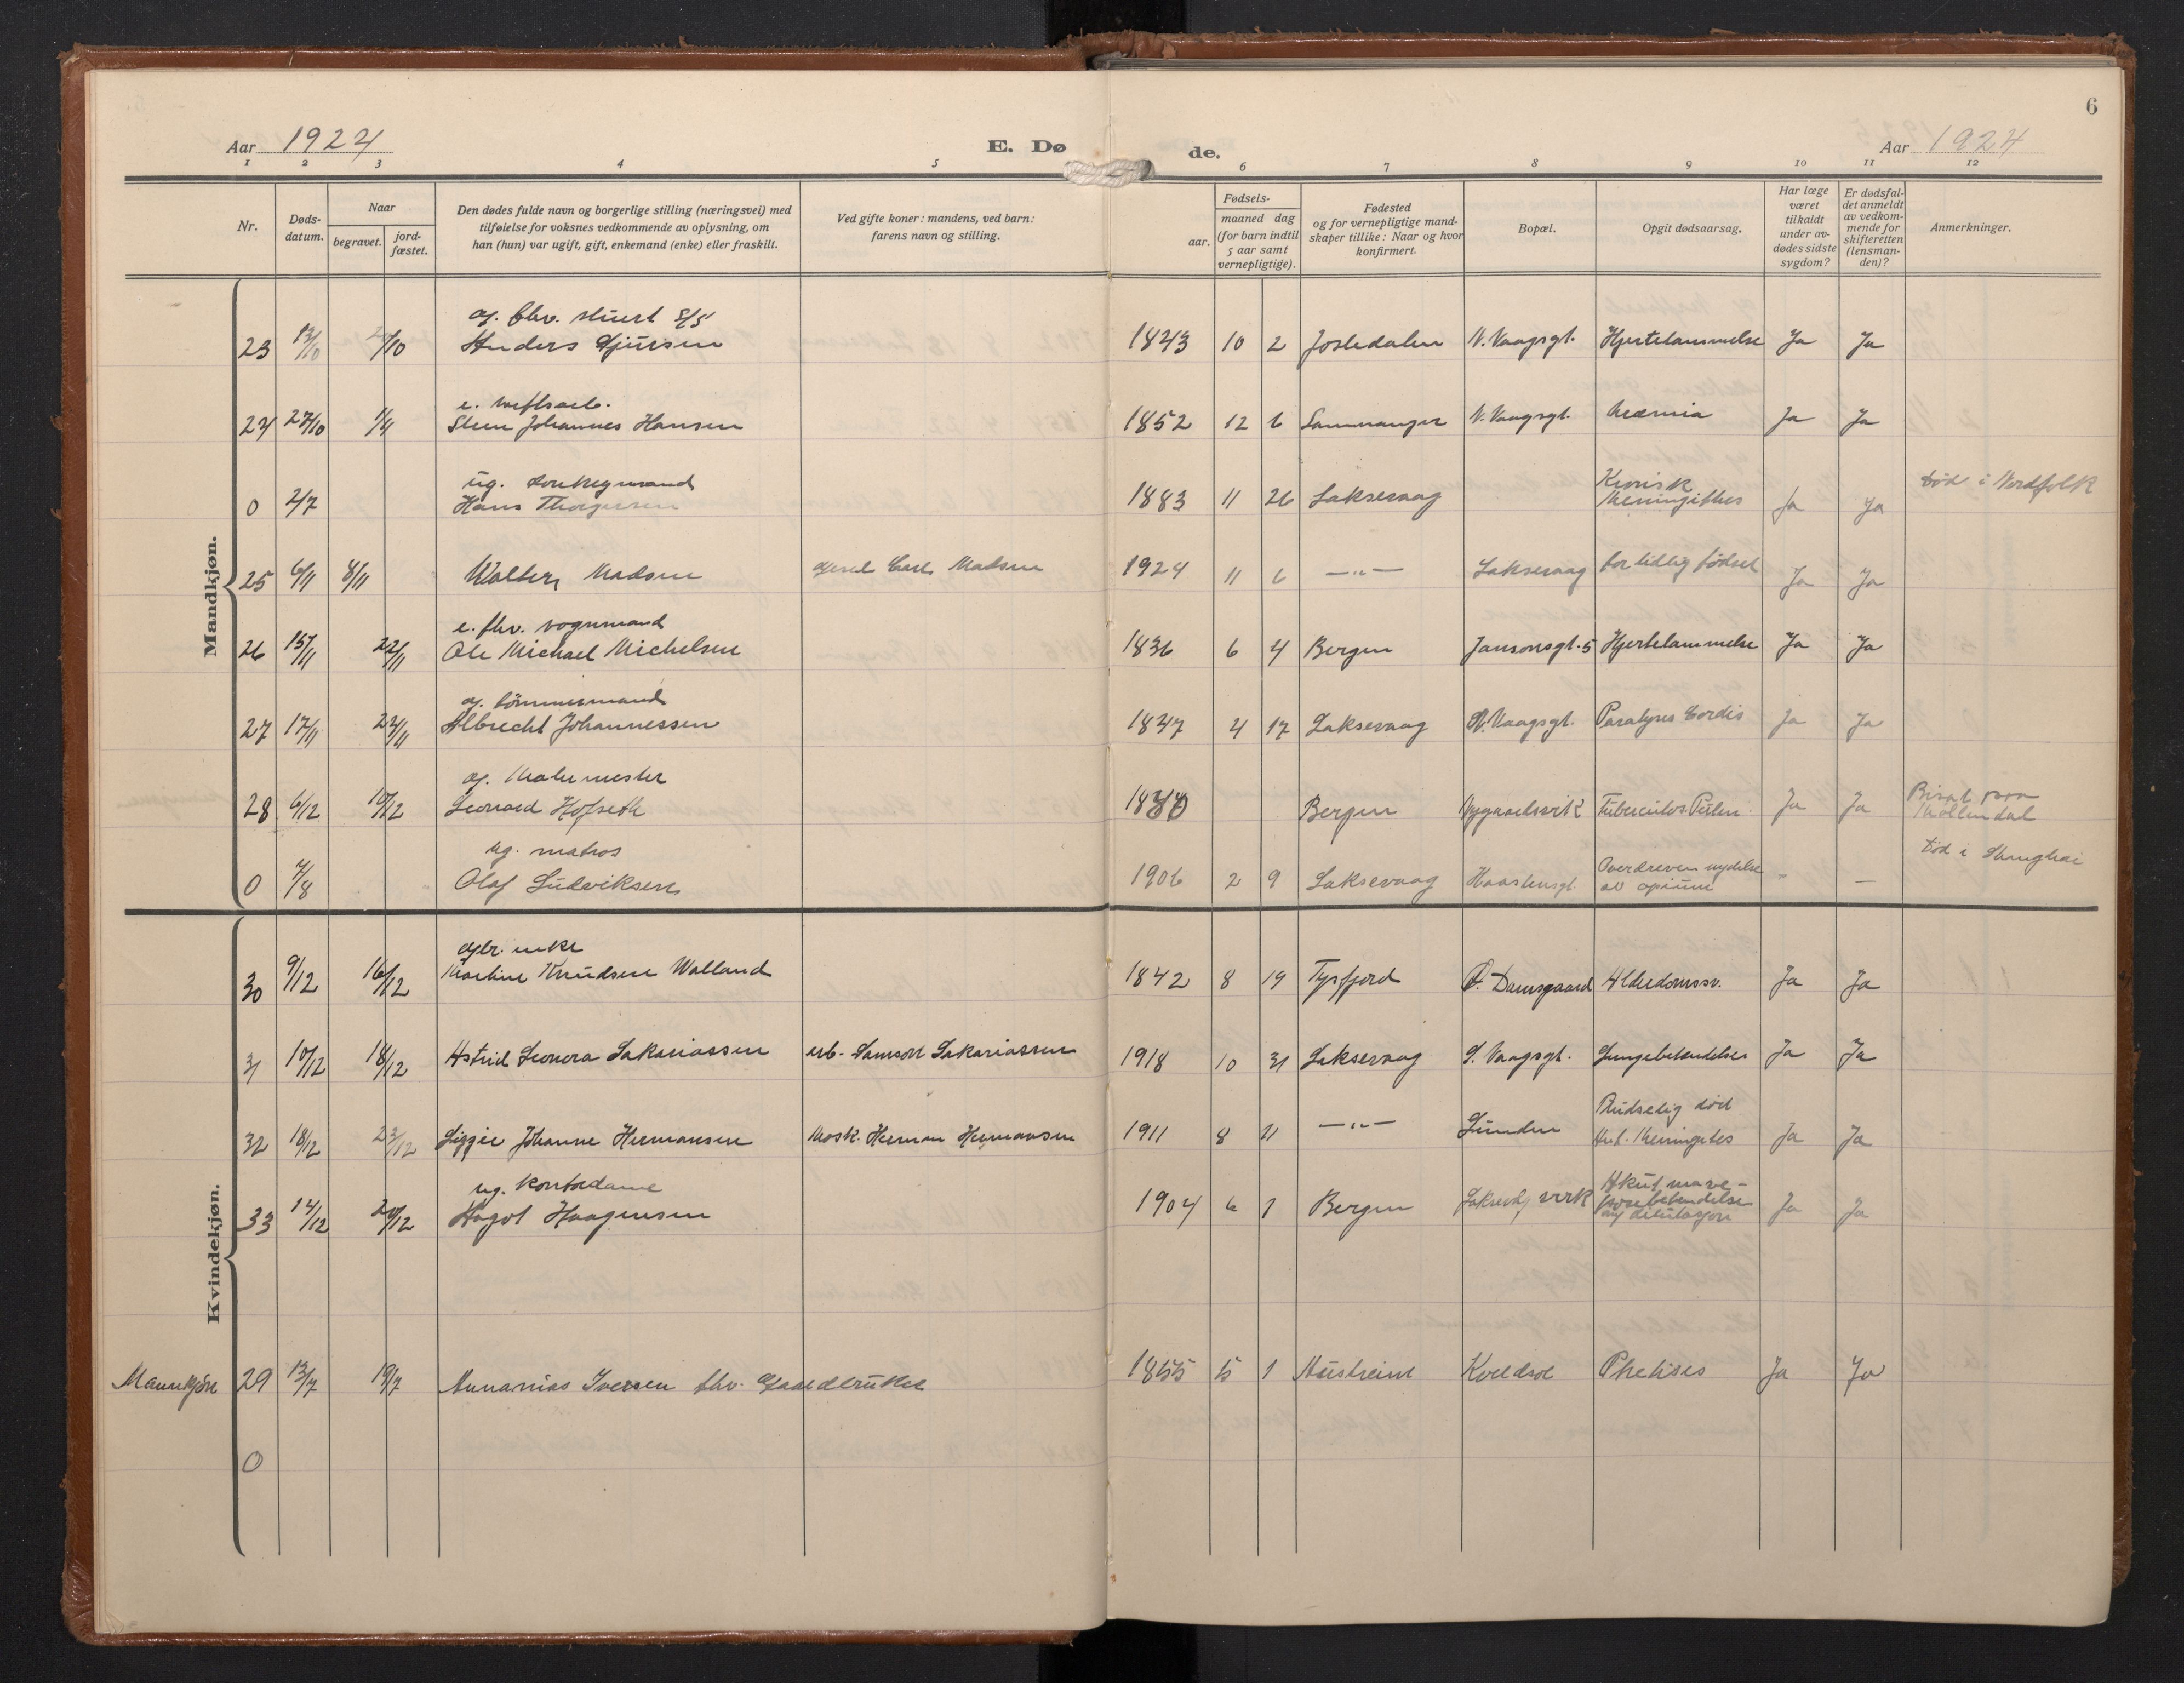 6
Aar 1924
E. Dø
de.
Aar 1924
1 2 3 4 5 6 7 8 9 10 11 12
Nr.
Døds-
datum.
Naar
begravet.
jord-
fæstet.
Den dødes fulde navn og borgerlige stilling (næringsvei) med
tilføielse for voksnes vedkommende av oplysning, om
han (hun) var ugift, gift, enkemand (enke) eller fraskilt.
Ved gifte koner: mandens, ved barn:
farens navn og stilling.
Fødsels-
aar.
maaned dag
(for barn indtil
5 aar samt
vernepligtige).
Fødested
og for vernepligtige mand-
skaper tillike: Naar og hvor
konfirmert.
Bopæl.
Opgit dødsaarsag.
Har læge
været
tilkaldt
under av-
dødes sidste
sygdom?
Er dødsfal-
det anmeldt
av vedkom-
mende for
skifteretten
(lensman-
den)?
Anmerkninger.
Mandkjøn.
g. fhv. stuert S/S
23 13/10 /10 Anders Gjursen 1843 10 2 Jostedalen N. Vaagsgt. Hjertelammelse Ja Ja
e. verftsarb.
24 27/10 Steen Johannes Hansen 1852 12 6 Samnanger N. Vaagsgt. Uræmia Ja Ja
ug. donkeymand
0 2/7 Hans Thorgersen 1883 11 26 Laksevaag Kronisk Meningithes Ja Ja død i Nordfolk
25 6/11 8/11 Walter Madsen Carl Madsen 1924 11 6 —"— Laksevaag for tidlig fødsel Ja Ja
e. fhv. vognmand
26 15/11 22/11 Ole Michael Michelsen 1836 6 4 Bergen Jansonsgt. 5 Hjertelammelse Ja Ja
g. tömmermand
27 17/11 24/11 Albrecht Johannessen 1847 4 17 Laksevaag N. Vaagsgt. Paralyses Cordis Ja Ja
g. Malermester
28 6/12 10/12 Leonard Hofseth Bergen Nygaardsvik Tuberculos. Pulm. Ja Ja Bisat paa Møllendal
ug. matros
0 /8 Olaf Ludviksen 1906 2 9 Laksevaag Haastensgt. Overdreven nydelse av opium — død i Shanghai
Kvindekjøn.
enke
30 9/12 16/12 Martine Knudsen Walland 1842 8 19 Tysfjord Ø. Damsgaard Alderdomssv. Ja Ja
31 10/12 18/12 Astrid Leonora Sakariassen arb. Samson Sakariassen 1918 10 31 Laksevaag S. Vaagsgt. Lungebetændelse Ja Ja
32 18/12 23/12 Liggie Johanne Hermansen Mask. Herman Hermansen 1911 8 11 —"— Lunden Pludselig död Ak. Meningites Ja Ja
ug. kontordame
33 14/12 20/12 Aagot Haagensen 1904 6 1 Bergen Laksevaag verk Akut mave- betændelse Ja Ja
Mannkjøn 29 13/7 19/7 Annanias Iversen fhv. Gaardbruker 1855 5 1 Austrheim Kveldsol Phetises Ja Ja
0